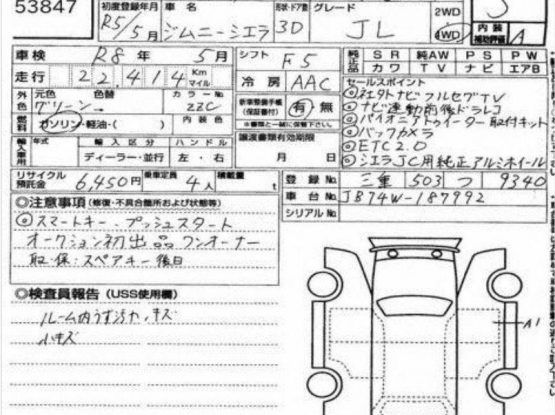 53847
初度登録年月 車名 形状・ドア数 グレード 2WD
R5/5月 ジムニーシエラ 3D JL 4WD 内装 補助評価 A
車検 R8年 5月 シフト F5 純正品 SR 純AW PS PW
カワ TV ナビ エアB
走行 22,414 Km マイル 冷房 AAC セールスポイント
外色 元色 色替 カラーNo. 新車整備手帳(保証書付) 有・無
グリーン→ ZZC ※書類と一緒に保管下さい。
◎ナビ連動前後ドラレコ
◎パイオニアトゥイーター取付キット
燃料 ガソリン・軽油・( ) 内装色 譲渡書類有効期限 ◎バックカメラ
輸入車用 年式 輸入区分 ハンドル 月 日 ◎ETC2.0
ディーラー・並行 左・右 ◎シエラJC用純正アルミホイール
リサイクル預託金 6,450円 乗車定員 4人 積載量 t 登録No. 三重 503 つ 9340
車台No. JB74W-187992
シリアルNo.
◎注意事項(修復・不具合箇所および状態等)
◎スマートキー、プッシュスタート
オークション初出品 ワンオーナー
取・保・スペアキー後日
◎検査員報告(USS使用欄)
ルーム内うす汚れ、キズ
小キズ
A1